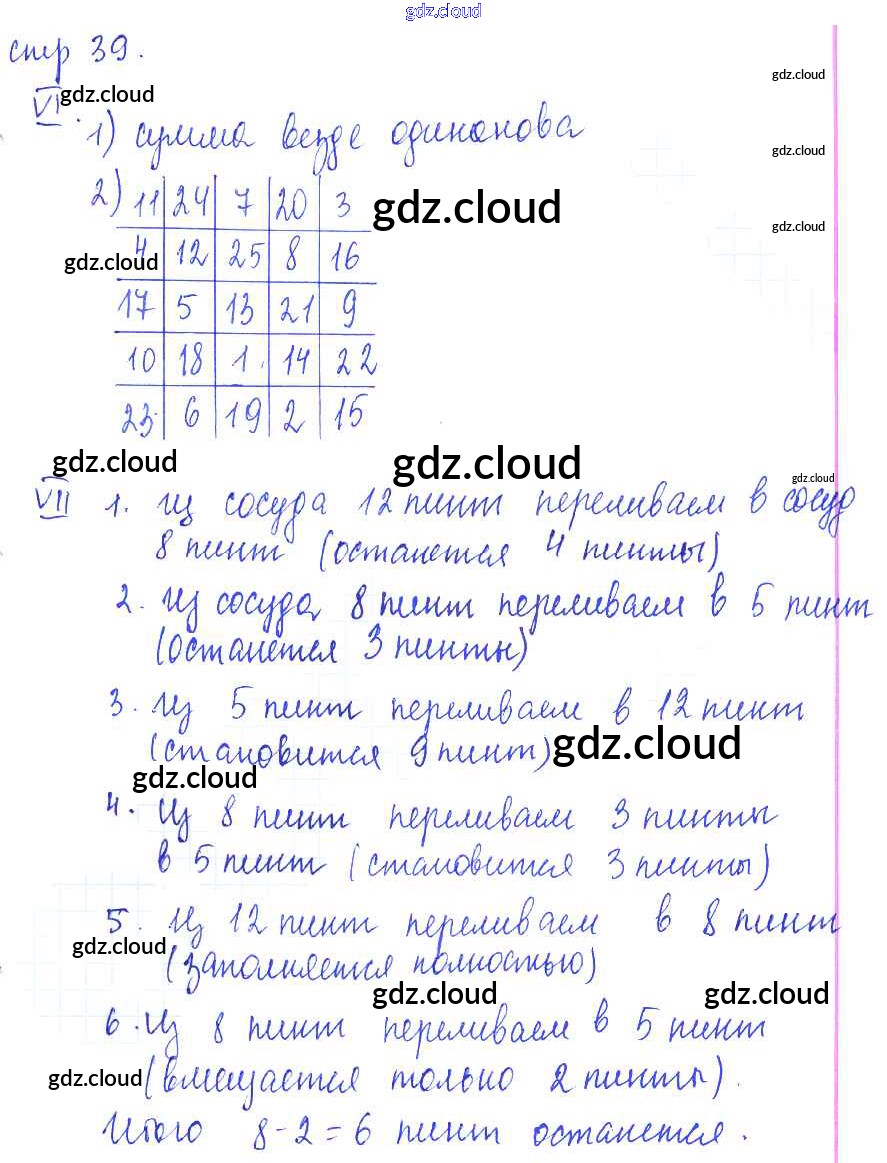 gdz.cloud
стр 39.
gdz.cloud
gdz.cloud
VI.
1) сумма везде одинакова
gdz.cloud
2) 11 24 7 20 3
gdz.cloud
gdz.cloud
4 12 25 8 16
gdz.cloud
17 5 13 21 9
10 18 1 14 22
23 6 19 2 15
gdz.cloud
gdz.cloud
gdz.cloud
VII 1. Из сосуда 12 пинт переливаем в сосуд
8 пинт (останется 4 пинты)
2. Из сосуда 8 пинт переливаем в 5 пинт
(останется 3 пинты)
3. Из 5 пинт переливаем в 12 пинт
(становится 9 пинт)
gdz.cloud
gdz.cloud
4. Из 8 пинт переливаем 3 пинты
в 5 пинт (становится 3 пинты)
5. Из 12 пинт переливаем в 8 пинт
gdz.cloud
(заполняется полностью)
gdz.cloud
gdz.cloud
6. Из 8 пинт переливаем в 5 пинт
gdz.cloud
(вмещается только 2 пинты).
Итого 8-2=6 пинт останется.